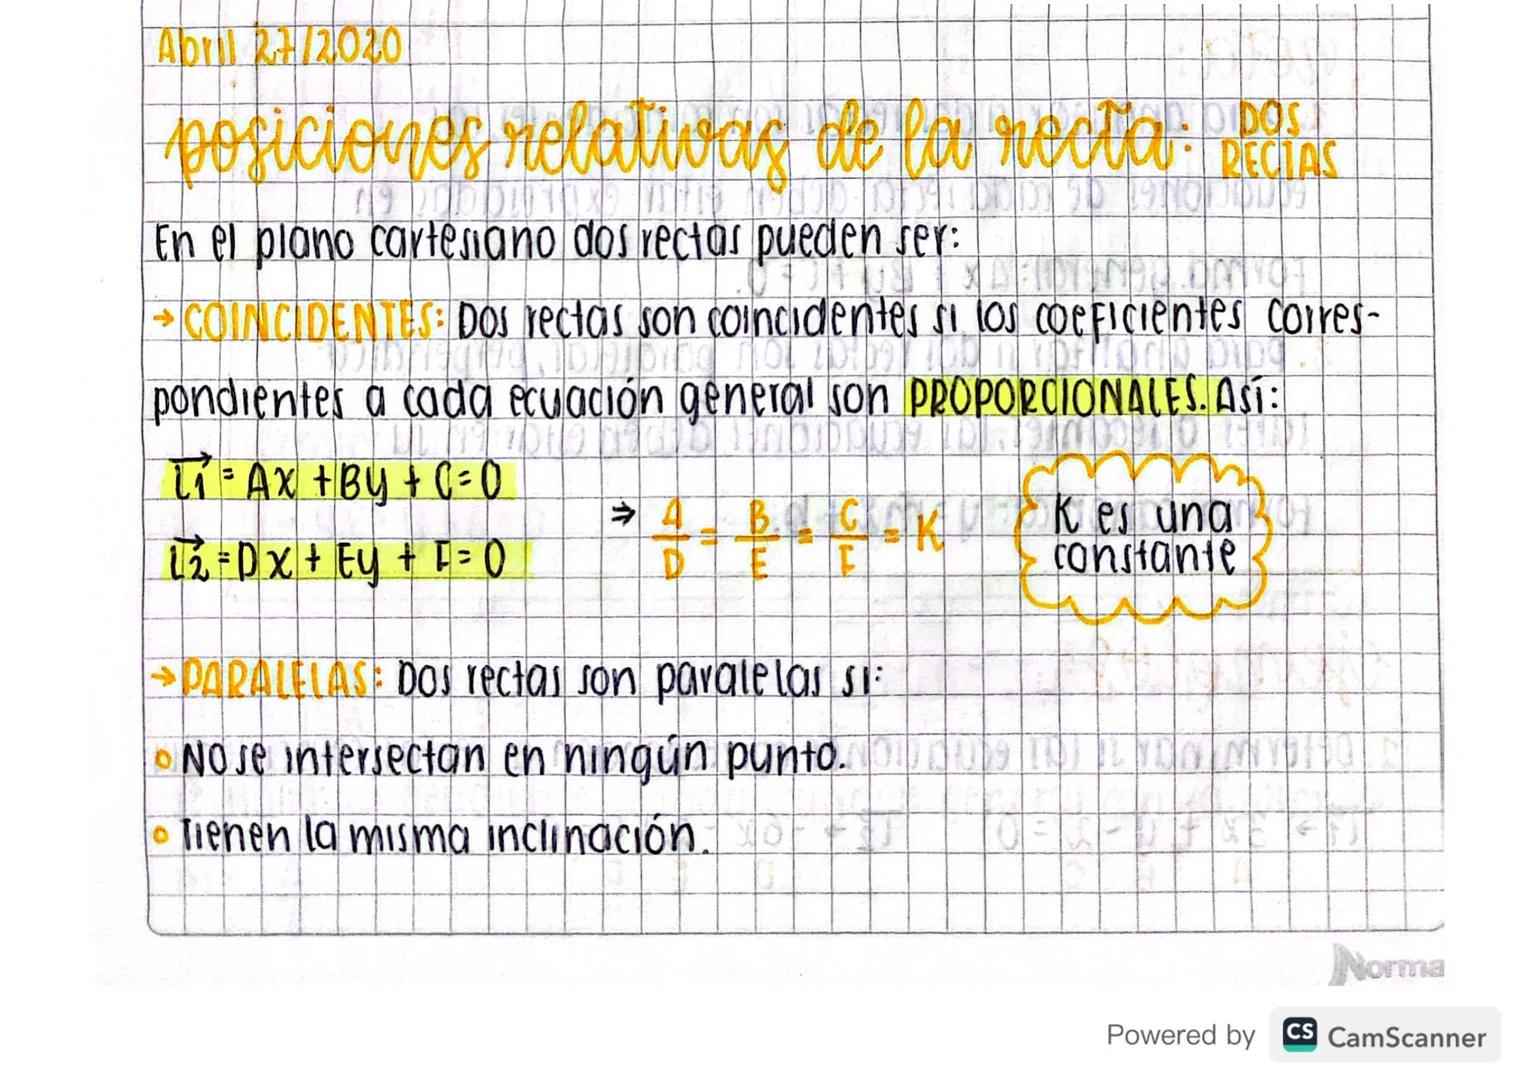 Abril 27/2020
posiciones relativas de la recta: DOS RECTAS
En el plano cartesiano dos rectas pueden ser:
→ COINCIDENTES: Dos rectas son coincidentes si los coeficientes corres-
pondientes a cada ecuación general son PROPORCIONALES. Así:
L1 = Ax + By + C = 0
L2 = Dx + Ey + F = 0
⇒ A/D = B/E = C/F = K
K es una
constante
→ PARALELAS: Dos rectas son paralelas si:
• No se intersectan en ningún punto.
• Tienen la misma inclinación.
Norma
Powered by CS CamScanner